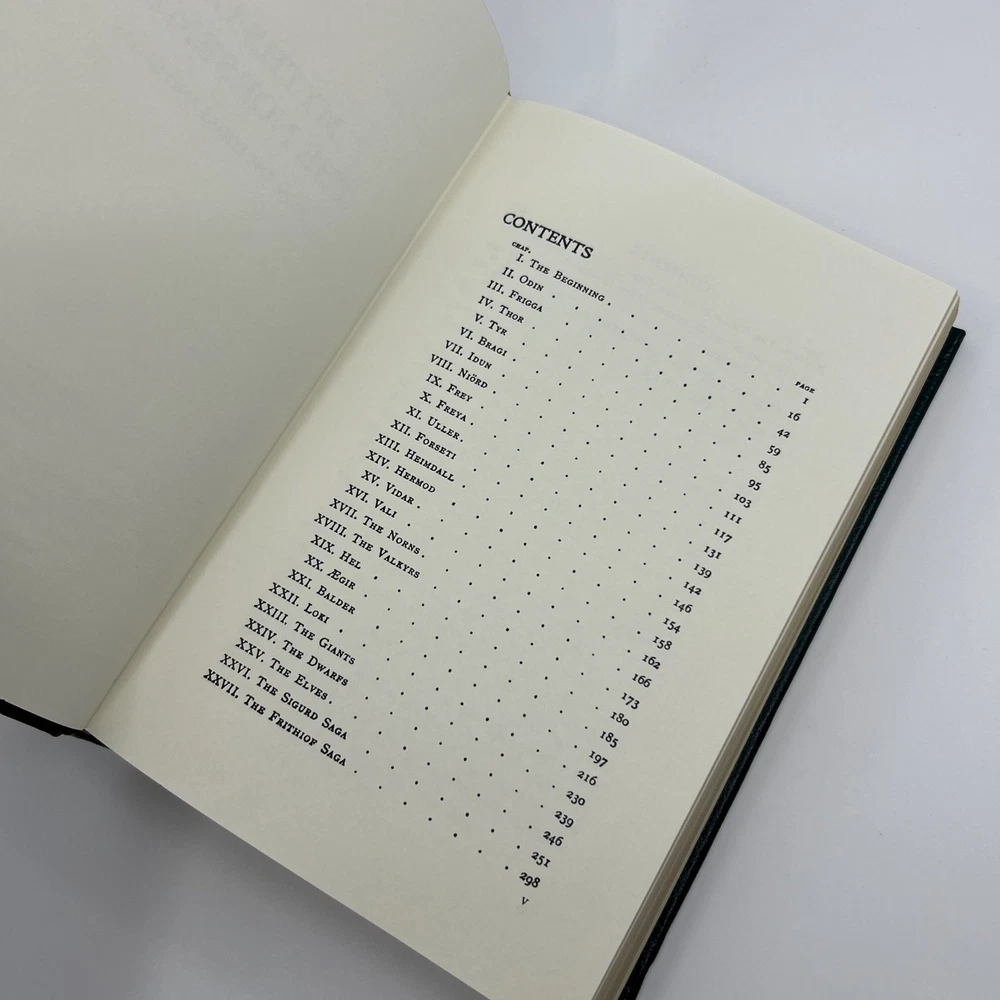 CONTENTS
CHAP. PAGE
I. The Beginning . 1
II. Odin . 16
III. Frigga 42
IV. Thor . 59
V. Tyr . 85
VI. Bragi . 95
VII. Idun . 103
VIII. Niörd . 111
IX. Frey . 117
X. Freya . 131
XI. Uller . 139
XII. Forseti . 142
XIII. Heimdall . 146
XIV. Hermod . 154
XV. Vidar . 158
XVI. Vali . 162
XVII. The Norns . 166
XVIII. The Valkyrs . 173
XIX. Hel . 180
XX. Ægir . 185
XXI. Balder . 197
XXII. Loki . 216
XXIII. The Giants . 230
XXIV. The Dwarfs . 239
XXV. The Elves . 246
XXVI. The Sigurd Saga . 251
XXVII. The Frithiof Saga . 298
v